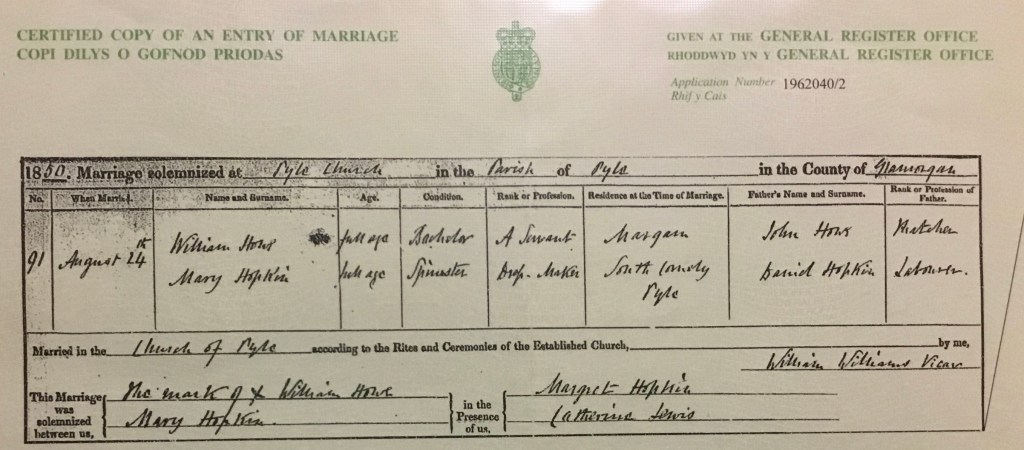 CERTIFIED COPY OF AN ENTRY OF MARRIAGE
COPI DILYS O GOFNOD PRIODAS
GIVEN AT THE GENERAL REGISTER OFFICE
RHODDWYD YN Y GENERAL REGISTER OFFICE
Application Number 1962040/2
Rhif y Cais
1850. Marriage solemnized at Pyle Church in the Parish of Pyle in the County of Glamorgan
No. When Married. Name and Surname. Age. Condition. Rank or Profession. Residence at the Time of Marriage. Father's Name and Surname. Rank or Profession of Father.
91 August 24th William Howe full age Bachelor A Servant Margam John Howe Thatcher
Mary Hopkin full age Spinster Dress-Maker South Cornely Pyle Daniel Hopkin Labourer.
Married in the Church of Pyle according to the Rites and Ceremonies of the Established Church, by me,
William Williams Vicar
This Marriage was solemnized between us, The mark of X William Howe
Mary Hopkin.
in the Presence of us, Margret Hopkin
Catherine Lewis